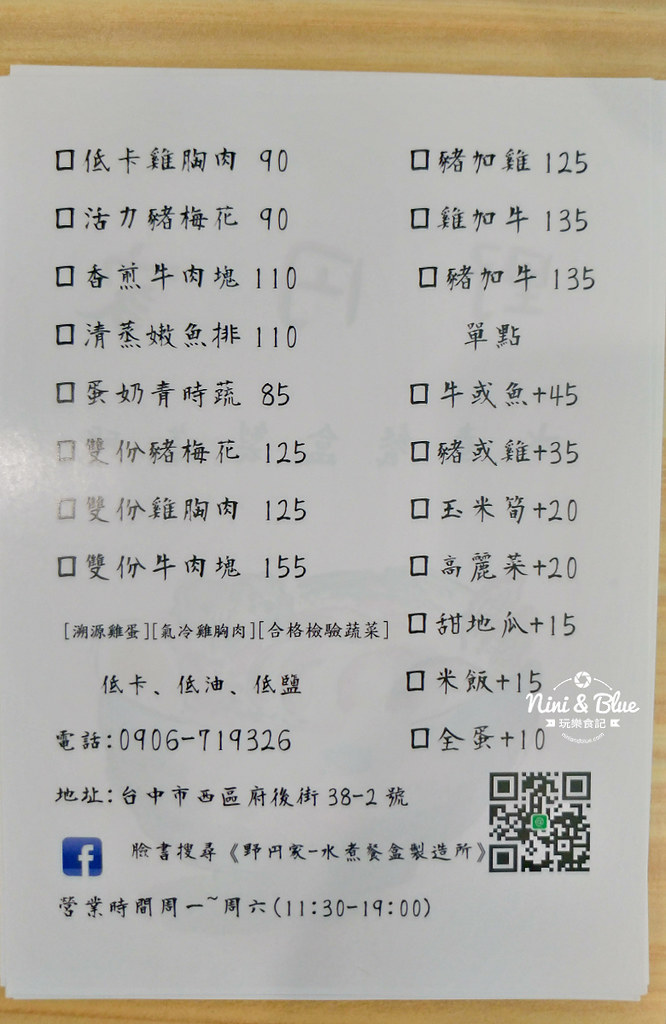 □低卡雞胸肉 90
□活力豬梅花 90
□香煎牛肉塊 110
□清蒸嫩魚排 110
□蛋奶青時蔬 85
□雙份豬梅花 125
□雙份雞胸肉 125
□雙份牛肉塊 155
[溯源雞蛋][氣冷雞胸肉][合格檢驗蔬菜]
低卡、低油、低鹽
□豬加雞 125
□雞加牛 135
□豬加牛 135
單點
□牛或魚+45
□豬或雞+35
□玉米筍+20
□高麗菜+20
□甜地瓜+15
□米飯+15
□全蛋+10
電話:0906-719326
地址:台中市西區府後街38-2號
臉書搜尋《野円家-水煮餐盒製造所》
營業時間周一~周六(11:30-19:00)
Nini & Blue
玩樂食記